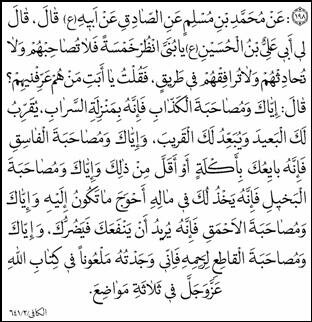 (١٩٨): عَنْ مُحَمَّدِ بْنِ مُسْلِمٍ عَنِ الصَّادِقِ عَنْ أَبِيهِ (ع) قَالَ، قَالَ
لِي أَبِي عَلِيُّ بْنُ الْحُسَيْنِ (ع) يَا بُنَيَّ انْظُرْ خَمْسَةً فَلَا تُصَاحِبْهُمْ وَلَا
تُحَادِثْهُمْ وَلَا تُرَافِقْهُمْ فِي طَرِيقٍ، فَقُلْتُ يَا أَبَتِ مَنْ هُمْ عَرِّفْنِيهِمْ؟
قَالَ: إِيَّاكَ وَمُصَاحَبَةَ الْكَذَّابِ فَإِنَّهُ بِمَنْزِلَةِ السَّرَابِ، يُقَرِّبُ
لَكَ الْبَعِيدَ وَيُبَعِّدُ لَكَ الْقَرِيبَ، وَإِيَّاكَ وَمُصَاحَبَةَ الْفَاسِقِ
فَإِنَّهُ بَايَعَكَ بِأُكْلَةٍ أَوْ أَقَلَّ مِنْ ذٰلِكَ وَإِيَّاكَ وَمُصَاحَبَةَ
الْبَخِيلِ فَإِنَّهُ يَخْذُلُكَ فِي مَالِهِ أَحْوَجَ مَا تَكُونُ إِلَيْهِ وَإِيَّاكَ
وَمُصَاحَبَةَ الْأَحْمَقِ فَإِنَّهُ يُرِيدُ أَنْ يَنْفَعَكَ فَيَضُرُّكَ، وَإِيَّاكَ
وَمُصَاحَبَةَ الْقَاطِعِ لِرَحِمِهِ فَإِنِّي وَجَدْتُهُ مَلْعُونًا فِي كِتَابِ اللهِ
عَزَّ وَجَلَّ فِي ثَلَاثَةِ مَوَاضِعَ.
الكافي/٢/٦٤١